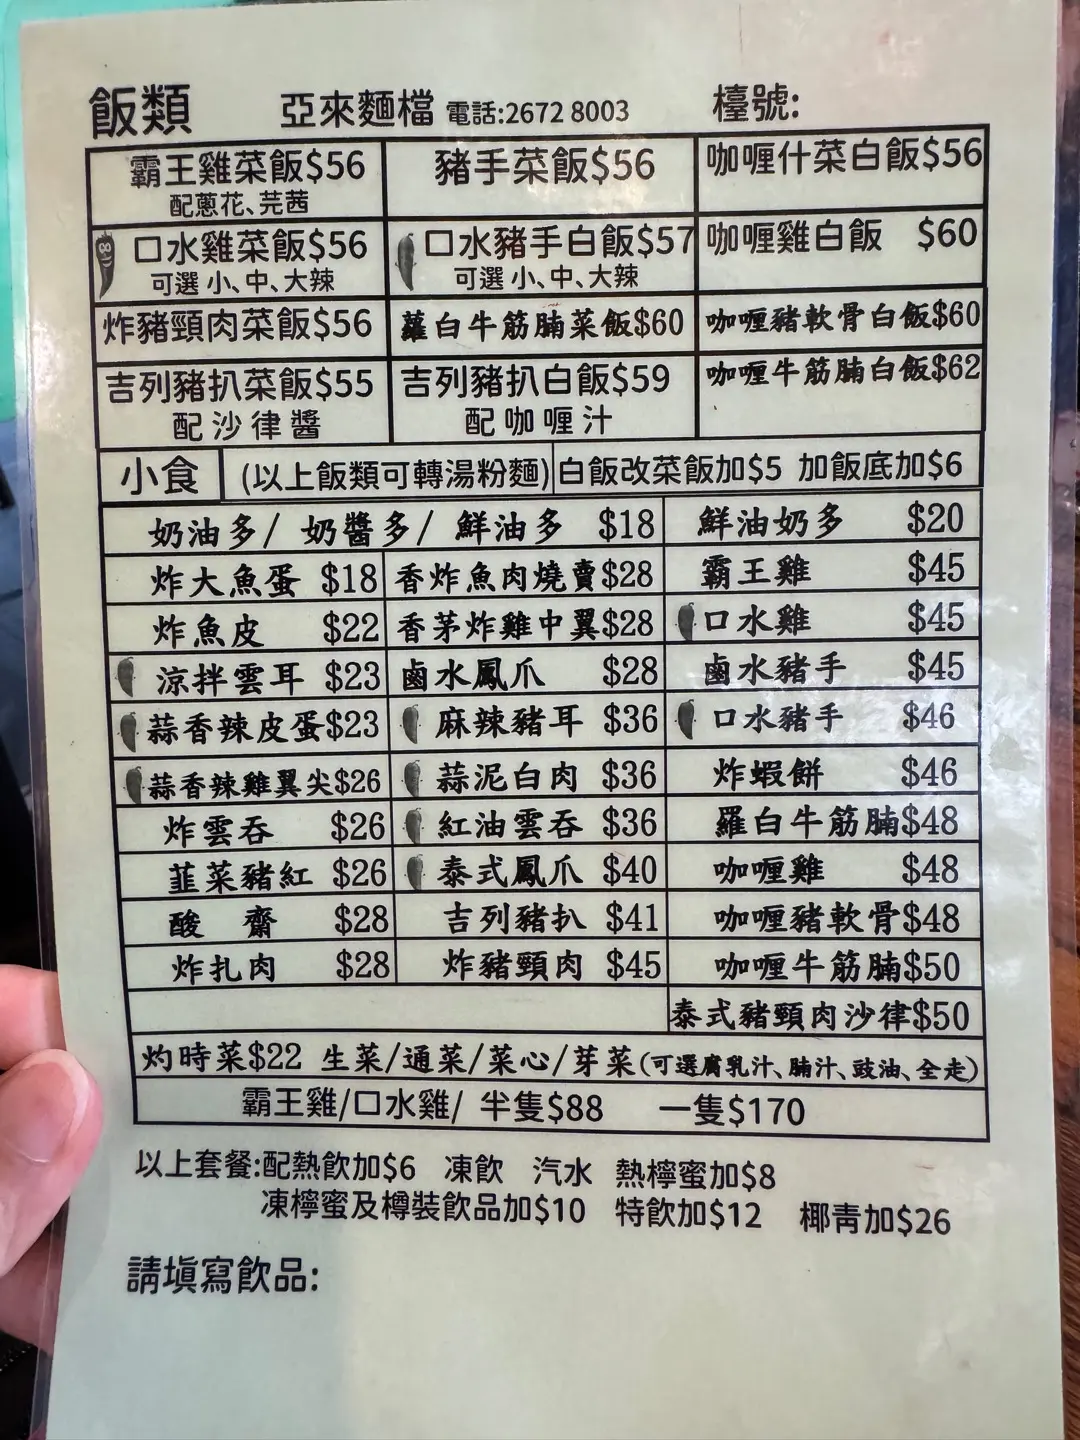 飯類 亞來麵檔 電話:2672 8003 檯號:
霸王雞菜飯$56 豬手菜飯$56 咖喱什菜白飯$56
配蔥花、芫茜
口水雞菜飯$56 口水豬手白飯$57 咖喱雞白飯 $60
可選 小、中、大辣 可選 小、中、大辣
炸豬頸肉菜飯$56 蘿白牛筋腩菜飯$60 咖喱豬軟骨白飯$60
吉列豬扒菜飯$55 吉列豬扒白飯$59 咖喱牛筋腩白飯$62
配沙律醬 配咖喱汁
小食 (以上飯類可轉湯粉麵) 白飯改菜飯加$5 加飯底加$6
奶油多/ 奶醬多/ 鮮油多 $18 鮮油奶多 $20
炸大魚蛋 $18 香炸魚肉燒賣$28 霸王雞 $45
炸魚皮 $22 香茅炸雞中翼$28 口水雞 $45
涼拌雲耳 $23 鹵水鳳爪 $28 鹵水豬手 $45
蒜香辣皮蛋$23 麻辣豬耳 $36 口水豬手 $46
蒜香辣雞翼尖$26 蒜泥白肉 $36 炸蝦餅 $46
炸雲吞 $26 紅油雲吞 $36 羅白牛筋腩$48
韮菜豬紅 $26 泰式鳳爪 $40 咖喱雞 $48
酸 齋 $28 吉列豬扒 $41 咖喱豬軟骨$48
炸扎肉 $28 炸豬頸肉 $45 咖喱牛筋腩$50
泰式豬頸肉沙律$50
灼時菜$22 生菜/通菜/菜心/芽菜(可選腐乳汁、腩汁、豉油、全走)
霸王雞/口水雞/ 半隻$88 一隻$170
以上套餐:配熱飲加$6 凍飲 汽水 熱檸蜜加$8
凍檸蜜及樽裝飲品加$10 特飲加$12 椰青加$26
請填寫飲品: